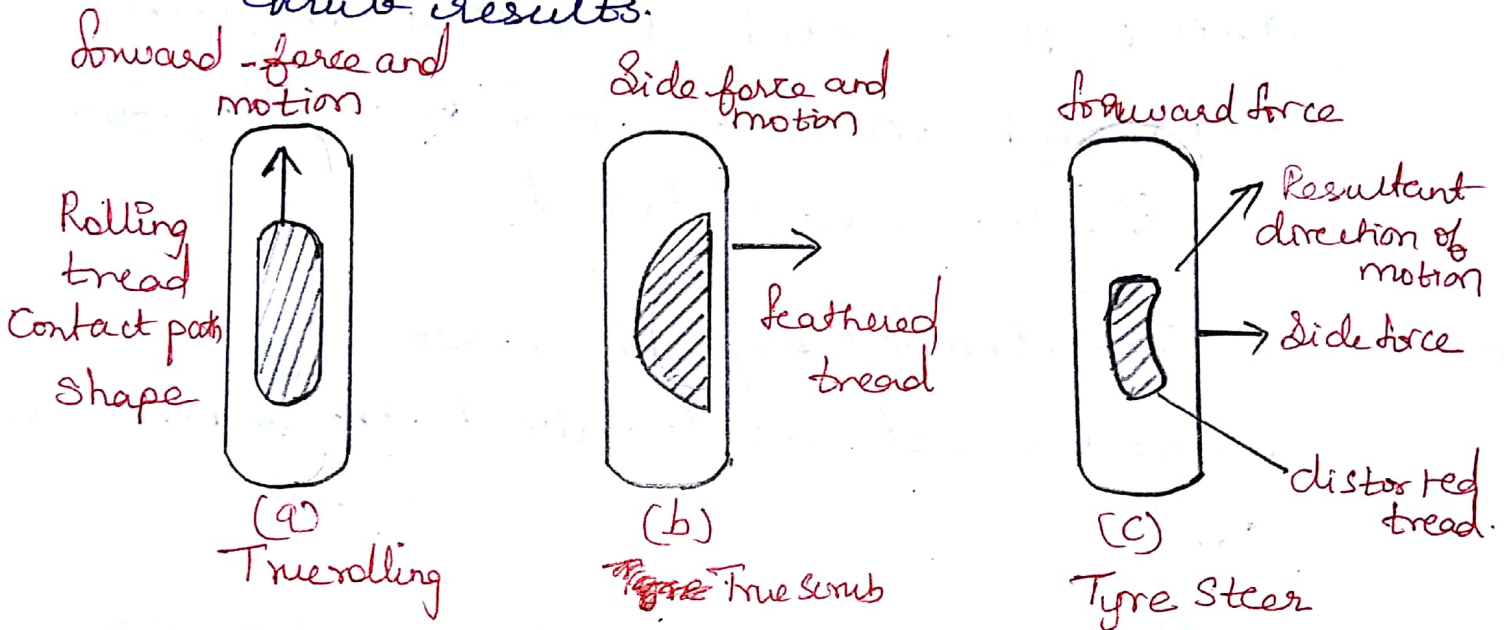 results.
forward - force and
motion
Rolling
tread
Contact path
shape
(a)
True rolling
Side force and
motion
feathered
tread
(b)
True Scrub
forward force
Resultant
direction of
motion
Side force
distorted
tread.
(c)
Tyre Steer